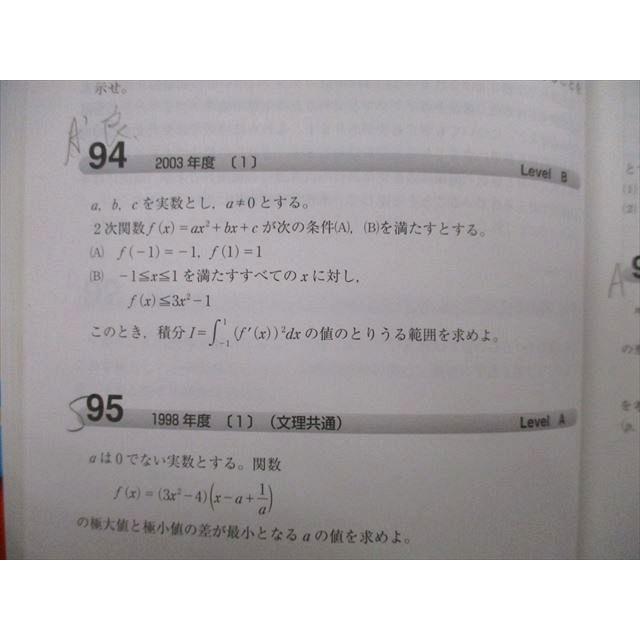 示せ。
94 2003年度 〔1〕 Level B
a, b, c を実数とし, a≠0とする。
2次関数 f(x)=ax²+bx+c が次の条件(A), (B)を満たすとする。
(A) f(-1)=-1, f(1)=1
(B) -1≦x≦1 を満たすすべての x に対し,
f(x)≦3x²-1
このとき, 積分 I=∫₋₁¹(f′(x))²dx の値のとりうる範囲を求めよ。
95 1998年度 〔1〕 (文理共通) Level A
a は0でない実数とする。関数
f(x)=(3x²-4)(x-a+1/a)
の極大値と極小値の差が最小となる a の値を求めよ。
(1)
(2)